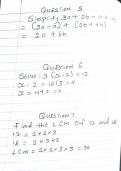 QUESTION 5
Simplify 3a + 5b - a + b
= (3a - a) + (5b + b)
= 2a + 6b
QUESTION 6
Solve: 3(x - 2) = 12
x - 2 = 12/3 = 4
x = 4 + 2 = 6
QUESTION 7
Find the LCM of 12 and 18
12 = 2 x 2 x 3
18 = 2 x 3 x 3
LCM = 2 x 2 x 3 x 3 = 36